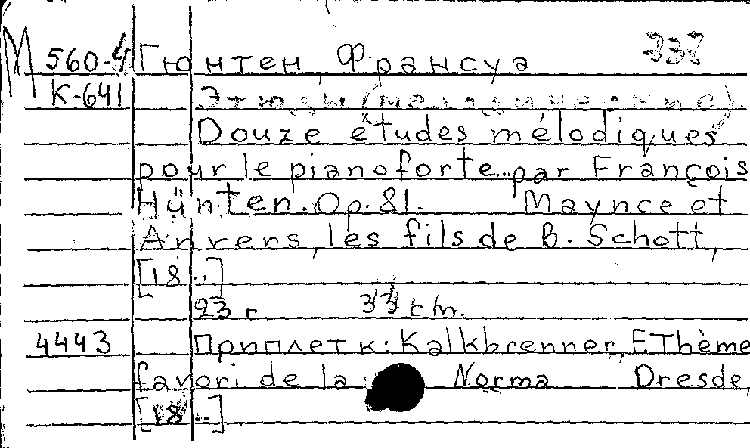 М 560-4 Гюнтен, Франсуа
К-641 Этюды (мелодические).
Douze études mélodiques
pour le pianoforte.. par François
Hünten. Op. 81. Maynce et
Anvers, les fils de B. Schott,
[18..]
23 г. cm.
4443 Приплет к: Kalkbrenner, F. Thème
favori de la Norma Dresde,
[18..]